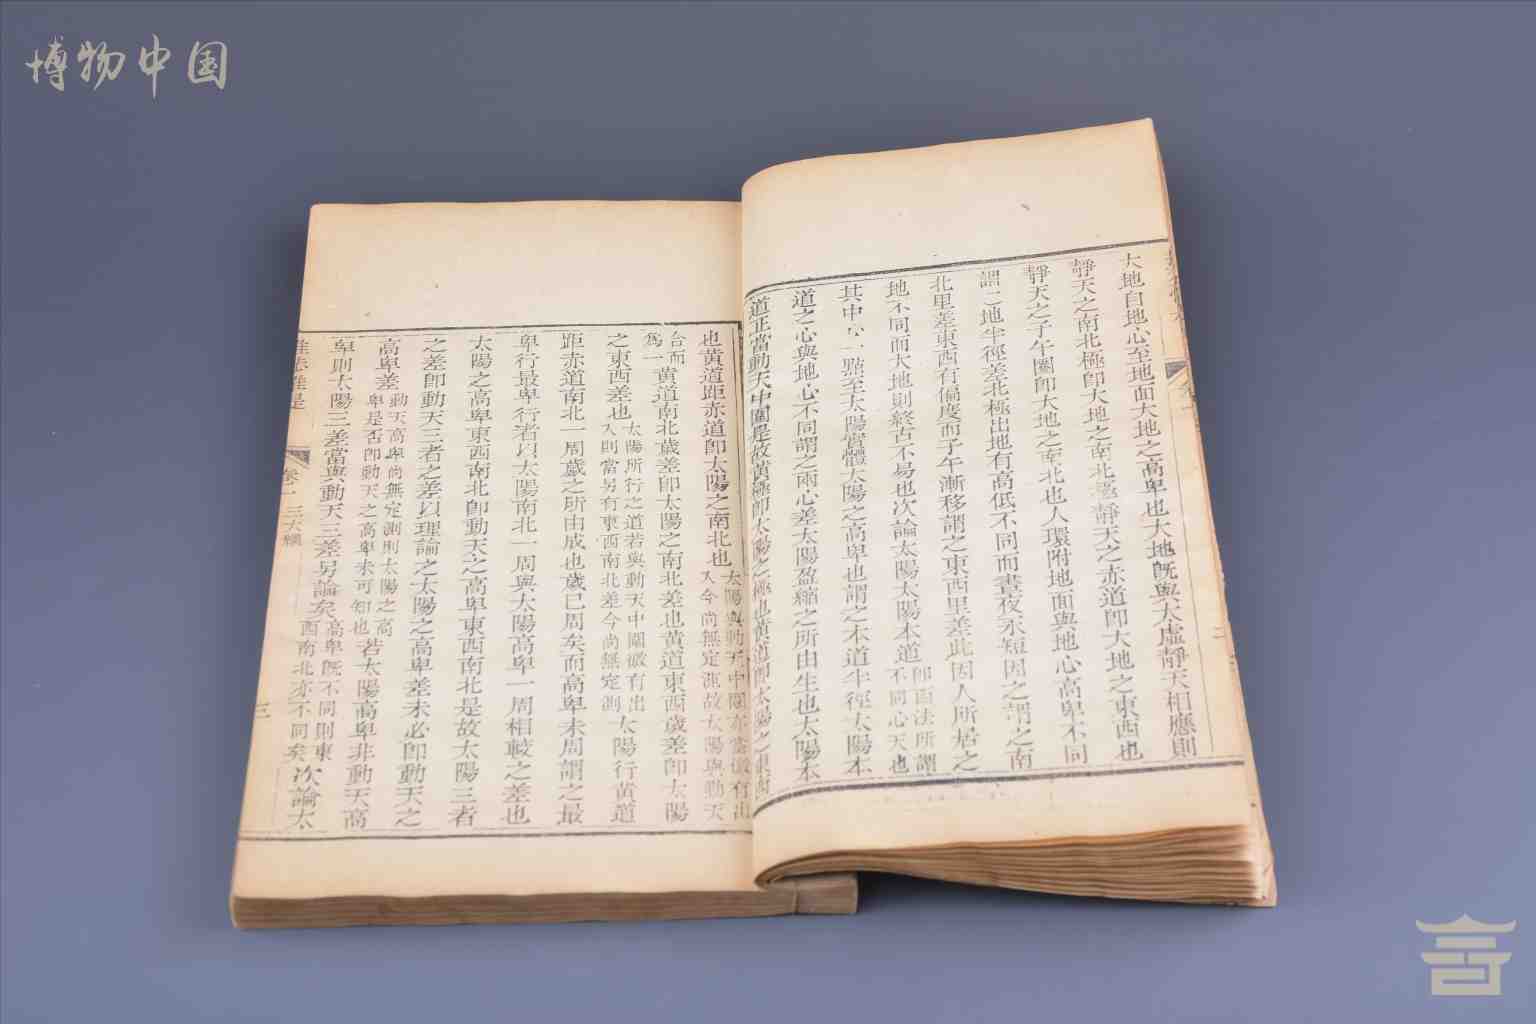 博物中国
大地自地心至地面大地之高卑也大地旣與太虛靜天相應則
靜天之南北極卽大地之南北極靜天之赤道卽大地之東西也
靜天之子午圈卽大地之南北也人環附地面與地心高卑不同
謂之地半徑差北極出地有高低不同而晝夜永短因之謂之南
北里差東西有偏度而子午漸移謂之東西里差此因人所居之
地不同而大地則終古不易也次論太陽太陽本道
卽西法所謂
不同心天也
其中心一點至太陽實體太陽之高卑也謂之本道半徑太陽本
道之心與地心不同謂之兩心差太陽盈縮之所由生也太陽本
道正當動天中圈是故黃極卽太陽之極也黃道卽太陽之東西
也黃道距赤道卽太陽之南北也
太陽與動天中圈亦當微有出
入今尚無定測故太陽與動天
合而
爲一
黃道南北歲差卽太陽之南北差也黃道東西歲差卽太陽
之東西差也
太陽所行之道若與動天中圈微有出
入則當另有東西南北差今尚無定測
太陽行黃道
距赤道南北一周歲之所由成也歲已周矣而高卑未周謂之最
卑行最卑行者以太陽南北一周與太陽高卑一周相較之差也
太陽之高卑東西南北卽動天之高卑東西南北是故太陽三者
之差卽動天三者之差以理論之太陽之高卑差未必卽動天之
高卑差
動天高卑尚無定測則太陽之高
卑是否卽動天之高卑未可知也
若太陽高卑非動天高
卑則太陽三差當與動天三差另論矣
高卑旣不同則東
西南北亦不同矣
次論太
推法推是
卷一
三六續
三